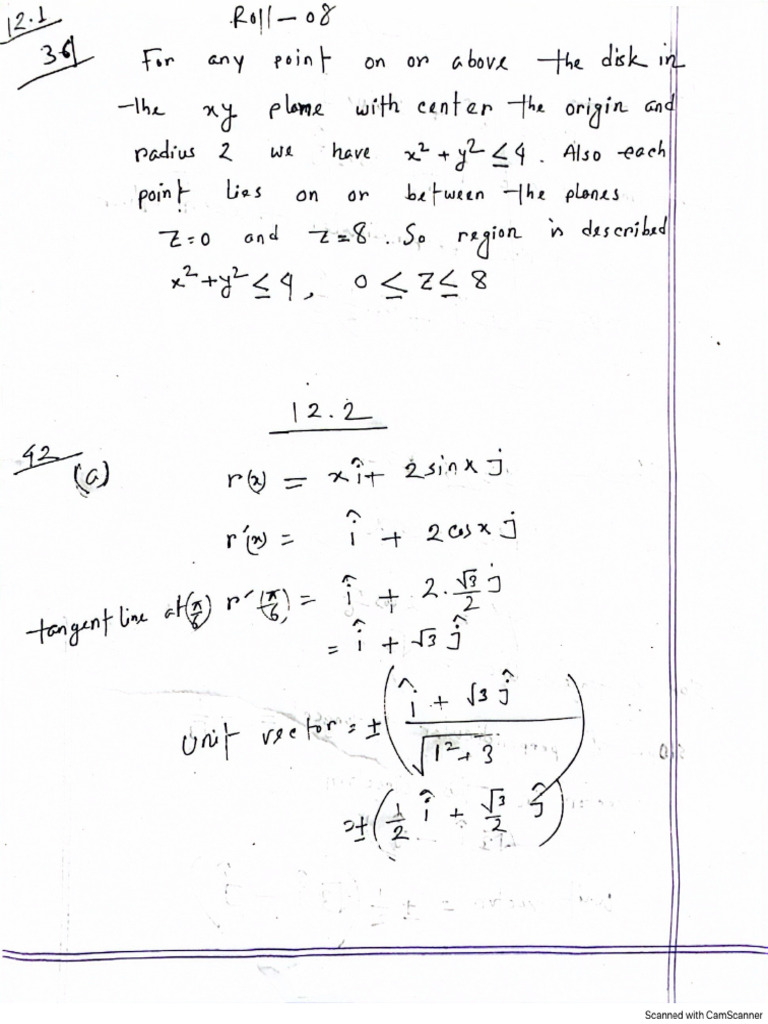 12.1
Roll - 08
36
For any point on or above the disk in
the xy plane with center the origin and
radius 2 we have x² + y² ≤ 4. Also each
point lies on or between the planes
z=0 and z=8. So region is described
x² + y² ≤ 4, 0 ≤ z ≤ 8
12.2
42
(a) r(x) = x î + 2 sin x j
r'(x) = î + 2 cos x ĵ
tangent line at (π/6) r'(π/6) = î + 2 · √3/2 j
= î + √3 ĵ
Unit vector = ± ( (î + √3 ĵ) / √(1² + 3) )
= ± ( 1/2 î + √3/2 ĵ )
Scanned with CamScanner